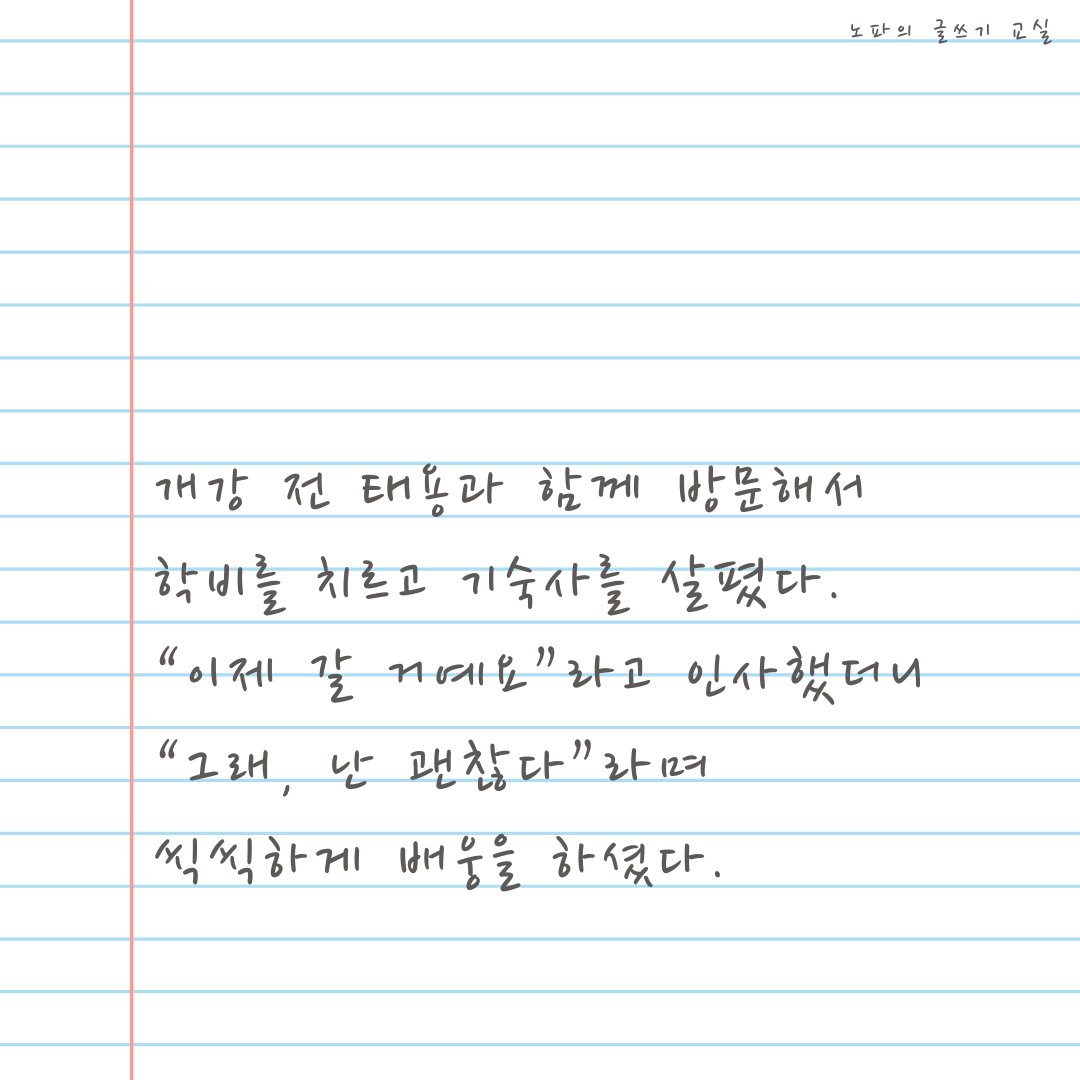 노파의 글쓰기 교실
개강 전 태용과 함께 방문해서
학비를 치르고 기숙사를 살폈다.
“이제 갈 거예요”라고 인사했더니
“그래, 난 괜찮다”라며
씩씩하게 배웅을 하셨다.